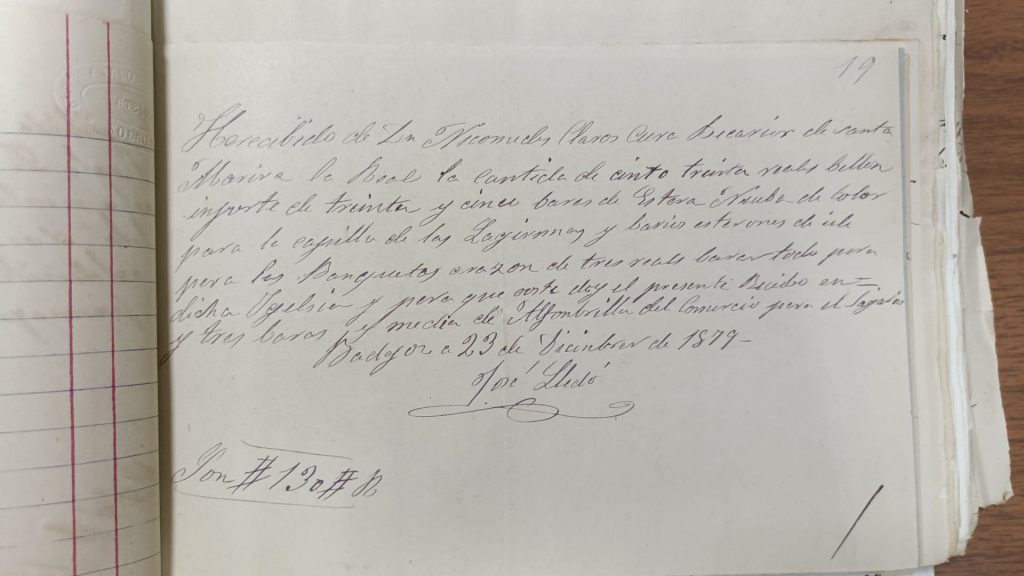 19
He recibido de Dn Nicomedes Claros Cura Ecconior de santa
Marina la Real la cantida de cinto trinta reals bellon
inporte de trinta y cinco bares de Estera Nauba de color
para la capilla de las Lagirmas y barios esterones de
pera los Banquetas arazon de tres reals bara todo para
dicha Ygelsia y pera que coste doy el presente Recibo en=
y tres baras y media de Alfonbrilla del Comercio pera el Sagrario
Badajoz a 23 de Dicinbrer de 1879-
José Lledó
Son # 130 # R